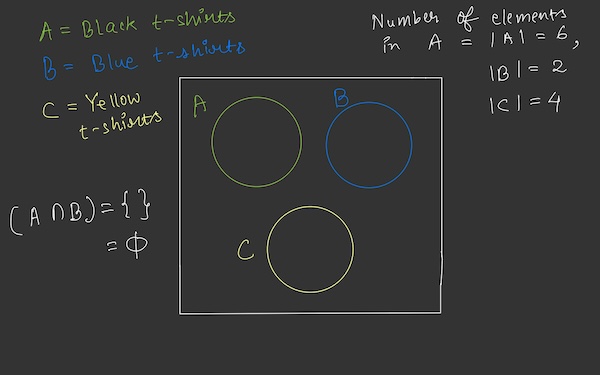 A = Black t-shirts
B = Blue t-shirts
C = Yellow
t-shirts
Number of elements
in A = |A| = 6,
|B| = 2
|C| = 4
A
B
C
(A ∩ B) = { }
= ϕ